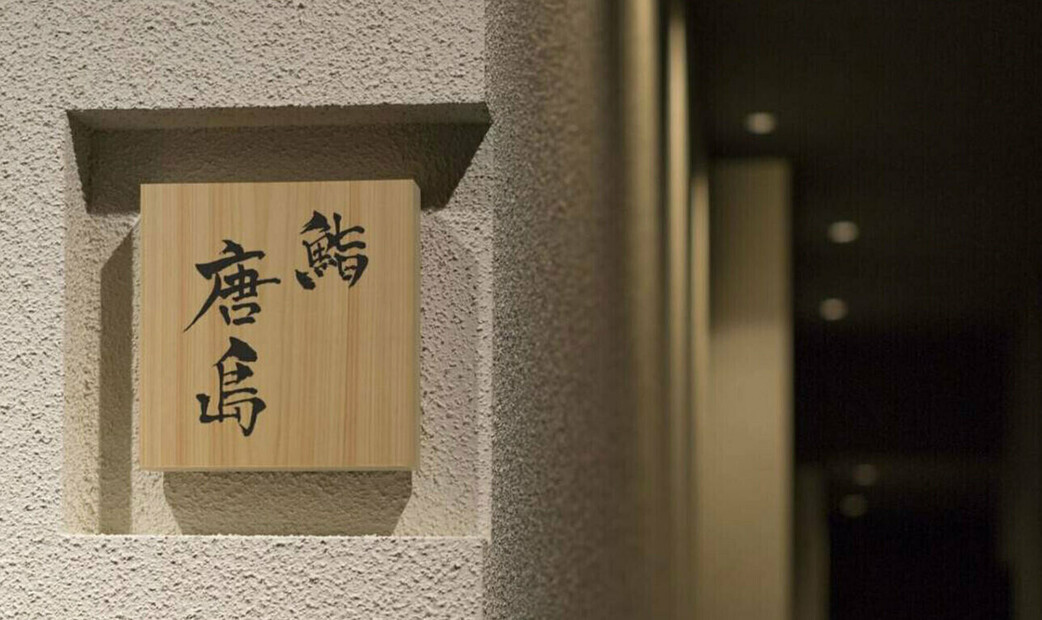 鮨
唐島